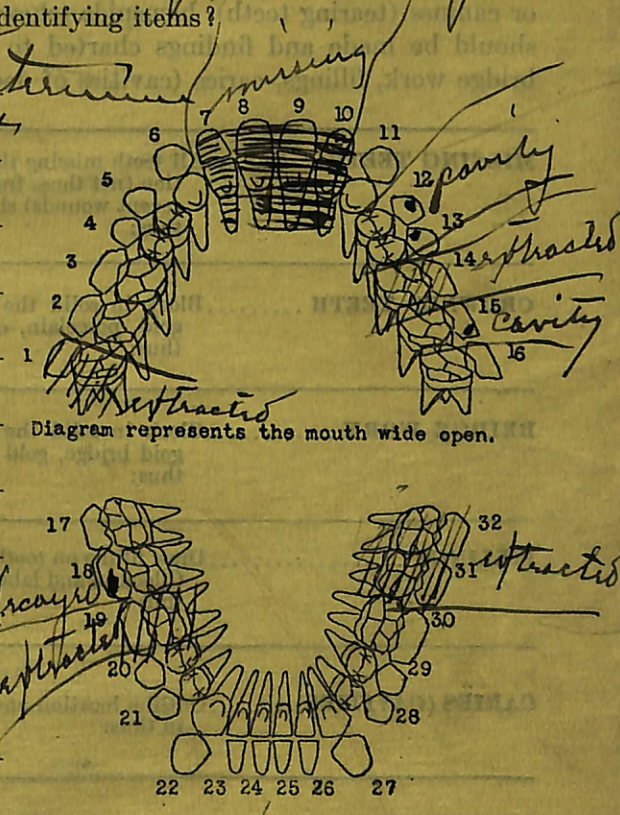 dentifying items?
missing
7 8 9 10
6 11
5 12 cavity
4 13
3 14 extracted
2 15 cavity
1 16
extracted
Diagram represents the mouth wide open.
17 32
18 31 extracted
19 30
extracted
20 29
21 28
22 23 24 25 26 27